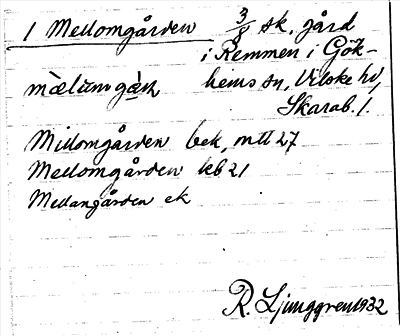 1 Mellomgården 3/8 sk. gård
i Remmen i Gök-
mæ̀lumgàɳ hems sn, Vilske hd,
Skarab. l.
Mellomgården bek, mtl 27
Mellomgården kb 21
Mellangården ek
R. Ljunggren 1932